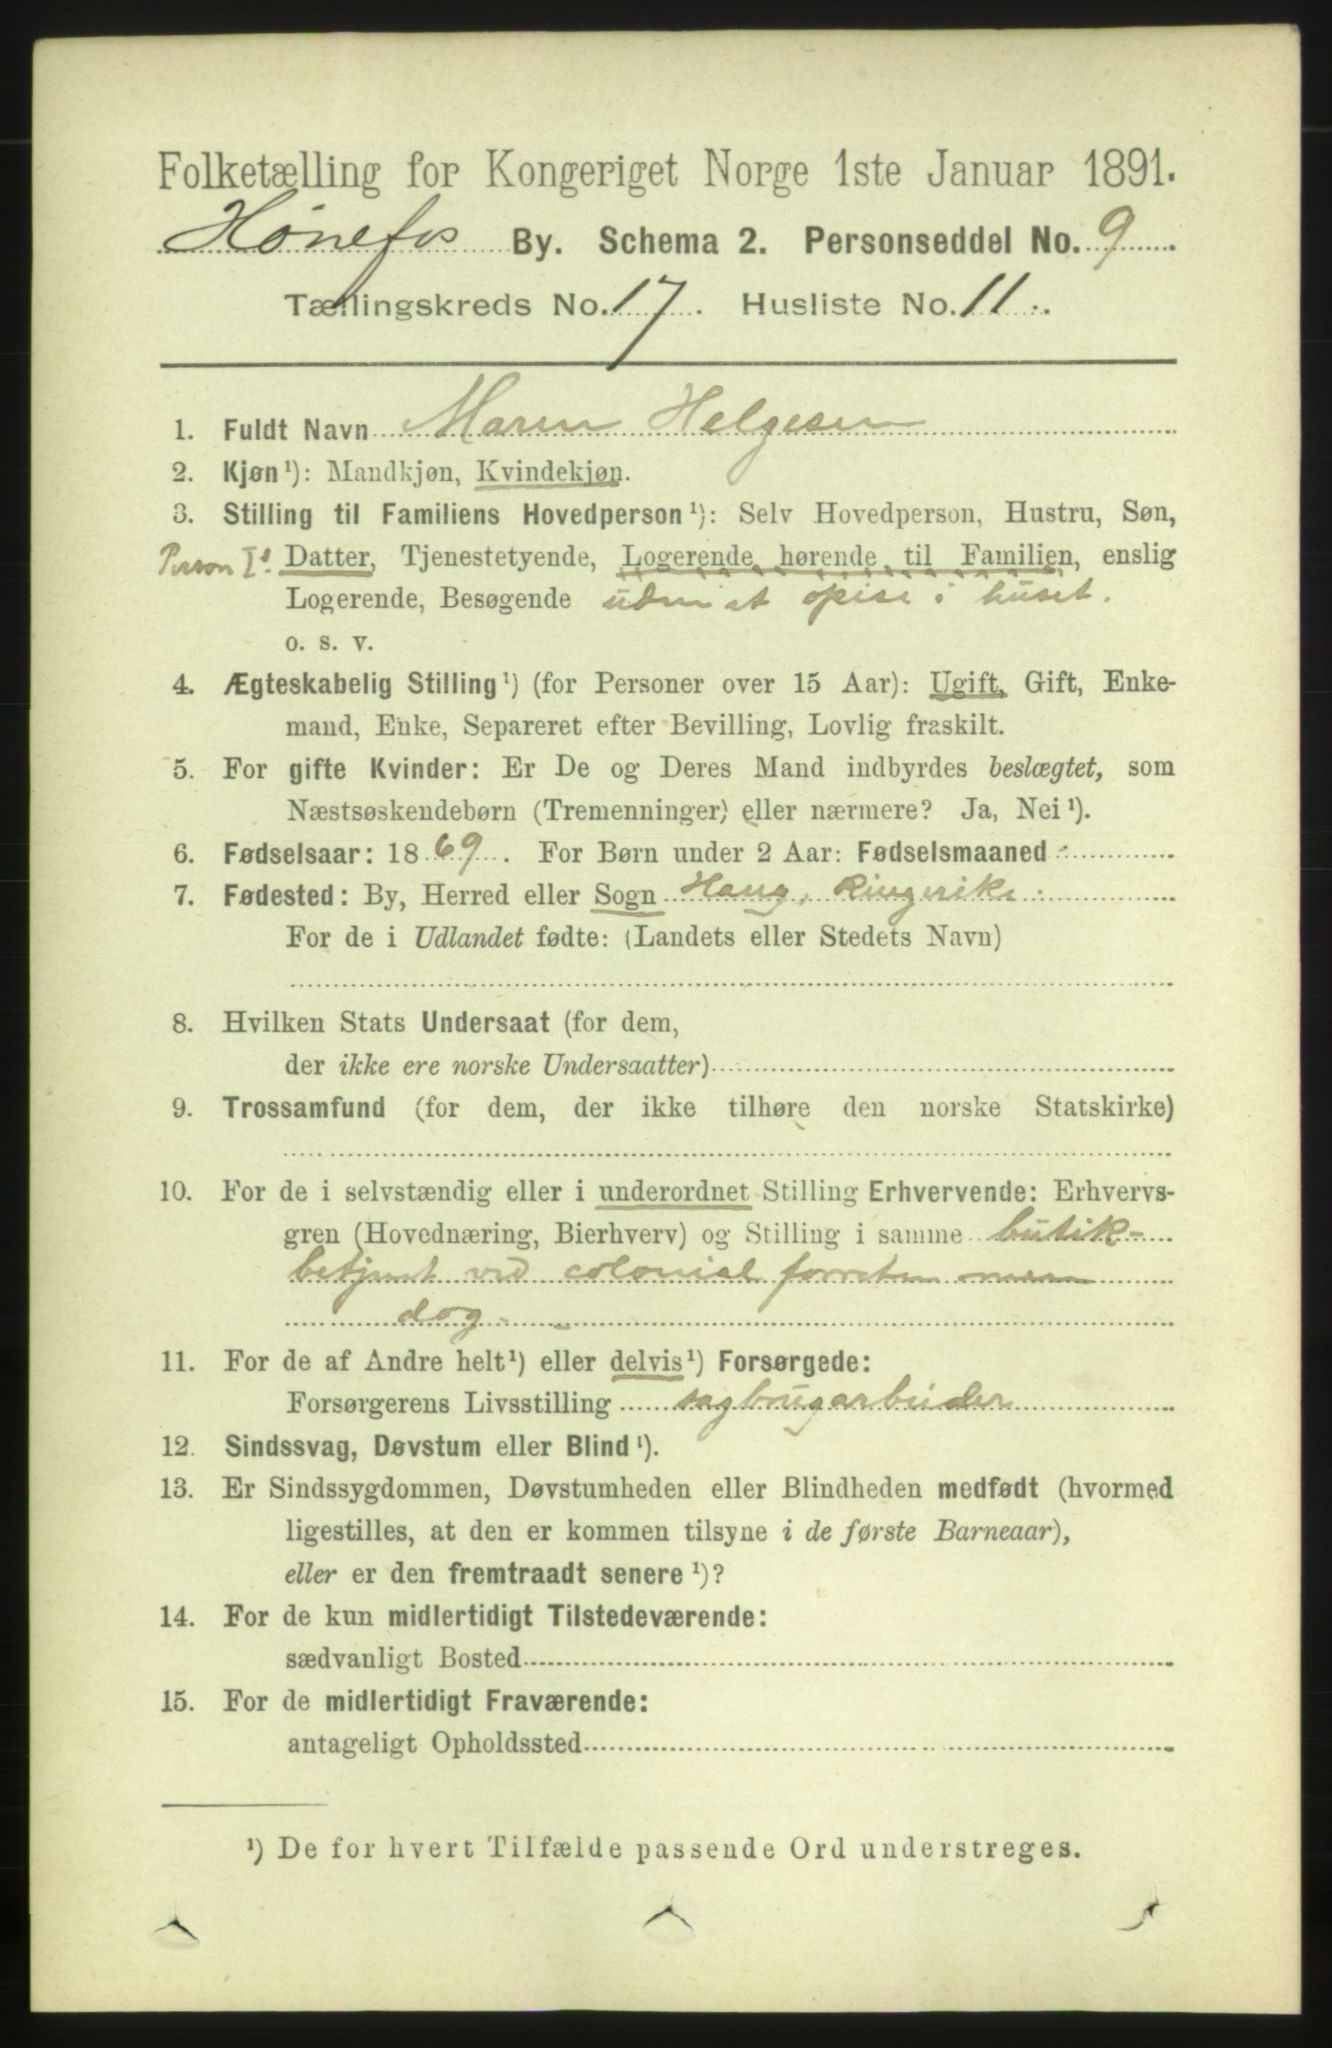 Folketælling for Kongeriget Norge 1ste Januar 1891.
Hønefos By. Schema 2. Personseddel No. 9
Tællingskreds No. 17. Husliste No. 11.
1. Fuldt Navn Maren Helgesen
2. Kjøn¹): Mandkjøn, Kvindekjøn.
3. Stilling til Familiens Hovedperson¹): Selv Hovedperson, Hustru, Søn,
Person Is Datter, Tjenestetyende, Logerende hørende til Familien, enslig
Logerende, Besøgende uden at spise i huset.
o. s. v.
4. Ægteskabelig Stilling¹) (for Personer over 15 Aar): Ugift, Gift, Enke-
mand, Enke, Separeret efter Bevilling, Lovlig fraskilt.
5. For gifte Kvinder: Er De og Deres Mand indbyrdes beslægtet, som
Næstsøskendebørn (Tremenninger) eller nærmere? Ja, Nei¹).
6. Fødselsaar: 1869. For Børn under 2 Aar: Fødselsmaaned
7. Fødested: By, Herred eller Sogn Haug, Ringerike
For de i Udlandet fødte: (Landets eller Stedets Navn)
8. Hvilken Stats Undersaat (for dem,
der ikke ere norske Undersaatter)
9. Trossamfund (for dem, der ikke tilhøre den norske Statskirke)
10. For de i selvstændig eller i underordnet Stilling Erhvervende: Erhvervs-
gren (Hovednæring, Bierhverv) og Stilling i samme butik-
betjent ved colonial forretn
dog
11. For de af Andre helt¹) eller delvis¹) Forsørgede:
Forsørgerens Livsstilling sagbrugarbeider
12. Sindssvag, Døvstum eller Blind¹).
13. Er Sindssygdommen, Døvstumheden eller Blindheden medfødt (hvormed
ligestilles, at den er kommen tilsyne i de første Barneaar),
eller er den fremtraadt senere¹)?
14. For de kun midlertidigt Tilstedeværende:
sædvanligt Bosted
15. For de midlertidigt Fraværende:
antageligt Opholdssted
¹) De for hvert Tilfælde passende Ord understreges.